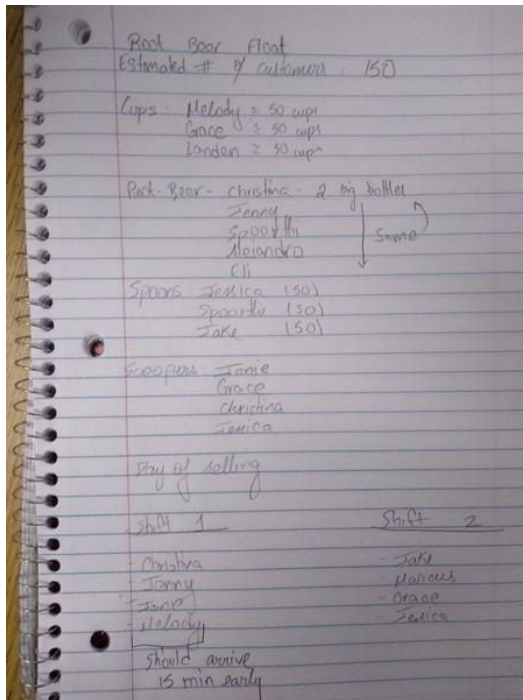 Root Beer Float
Estimated # of customers - 150
Cups: Melody = 50 cups
Grace = 50 cups
Landen = 50 cups
Root-Beer - Christina - 2 big bottles
Jenny
Spoorthi
Alejandro
Eli
Same
Spoons: Jessica (50)
Spoorthi (50)
Jake (50)
Scoopers: Janie
Grace
Christina
Jessica
Day of selling
Shift 1
Shift 2
- Christina
- Jenny
- Melody
- Jake
- Marcus
- Grace
- Jessica
should arrive
15 min early